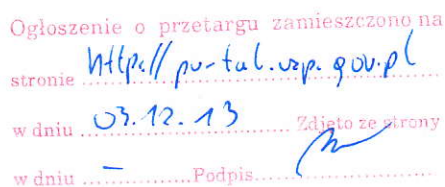 Ogłoszenie o przetargu zamieszczono na
stronie http://portal.uzp.gov.pl
w dniu 03.12.13 Zdjęto ze strony
w dniu – Podpis